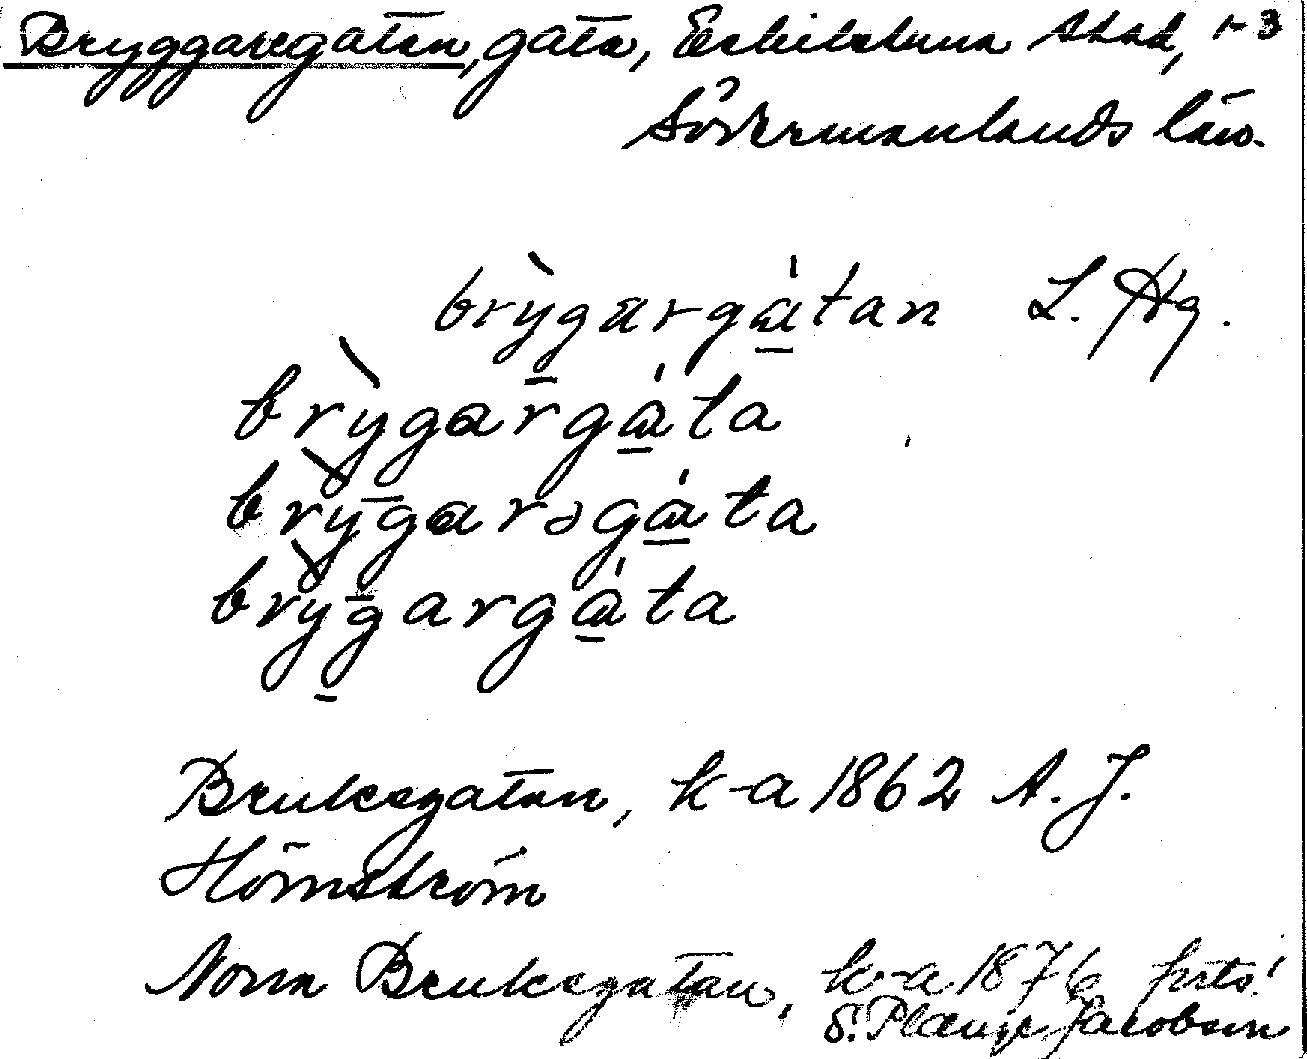 Bryggaregatan, gata, Eskilstuna stad, 1-3
Södermanlands län.
brỳgarga̱̍tan L. Hg.
brỳgarga̱̍ta
brỳgarəga̱̍ta
brỳgarga̱̍ta
Bruksgatan, k-a 1862 A. J.
Hörnström
Norra Bruksgatan, k-a 1876 forts!
S. Jacobson